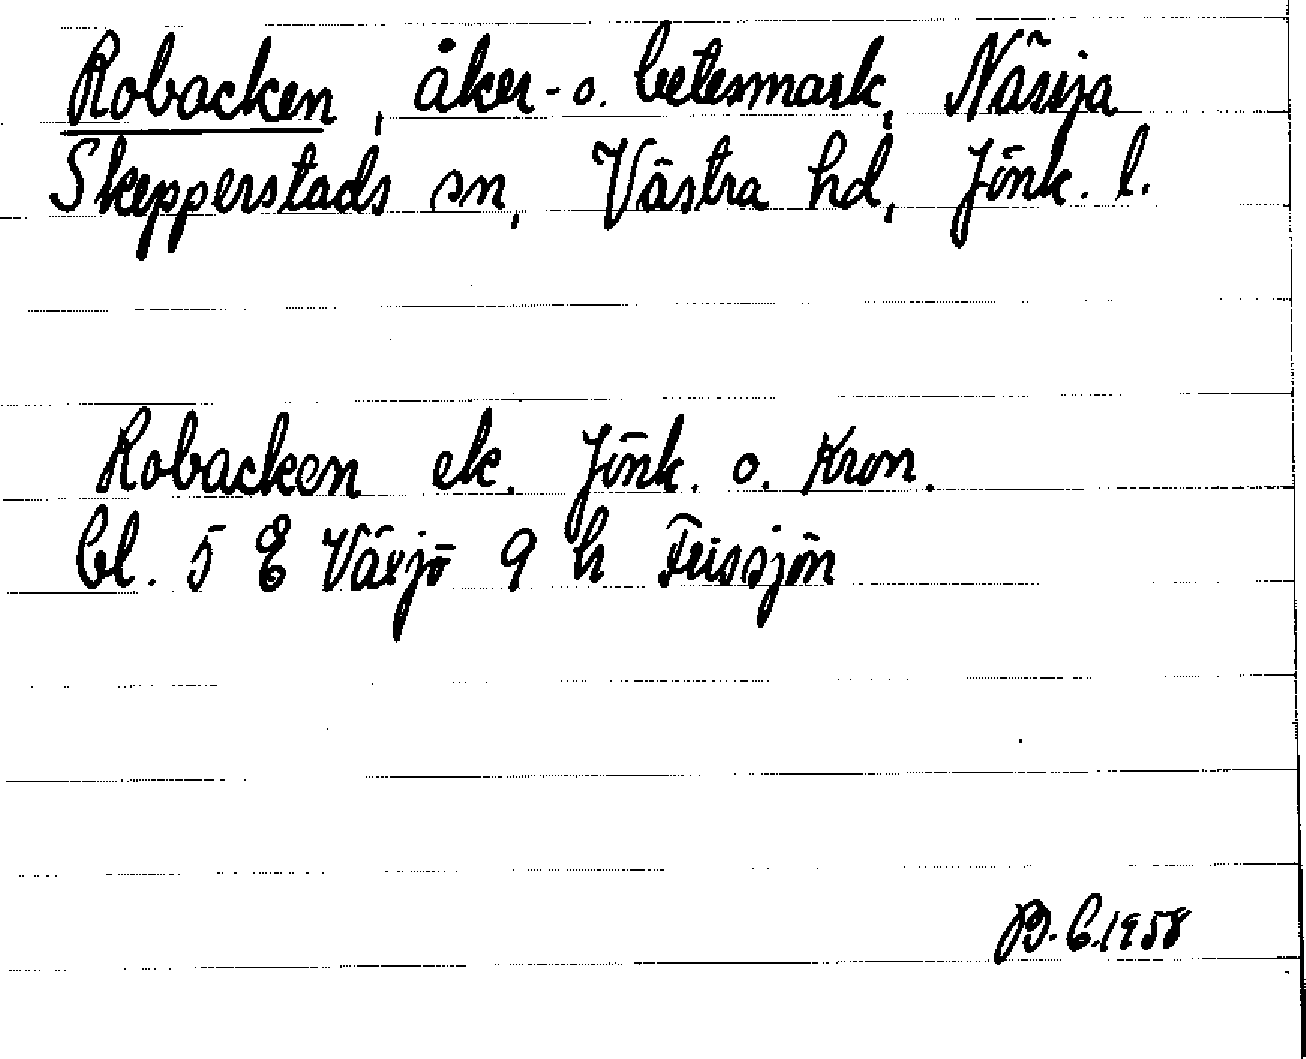 Robacken, åker- o. betesmark, Näsija
Skepperstads sn, Västra hd, Jönk. l.
Robacken ek. Jönk. o. Kron.
bl. 5 E Växjö 9 h Feissjön
B.C.1958